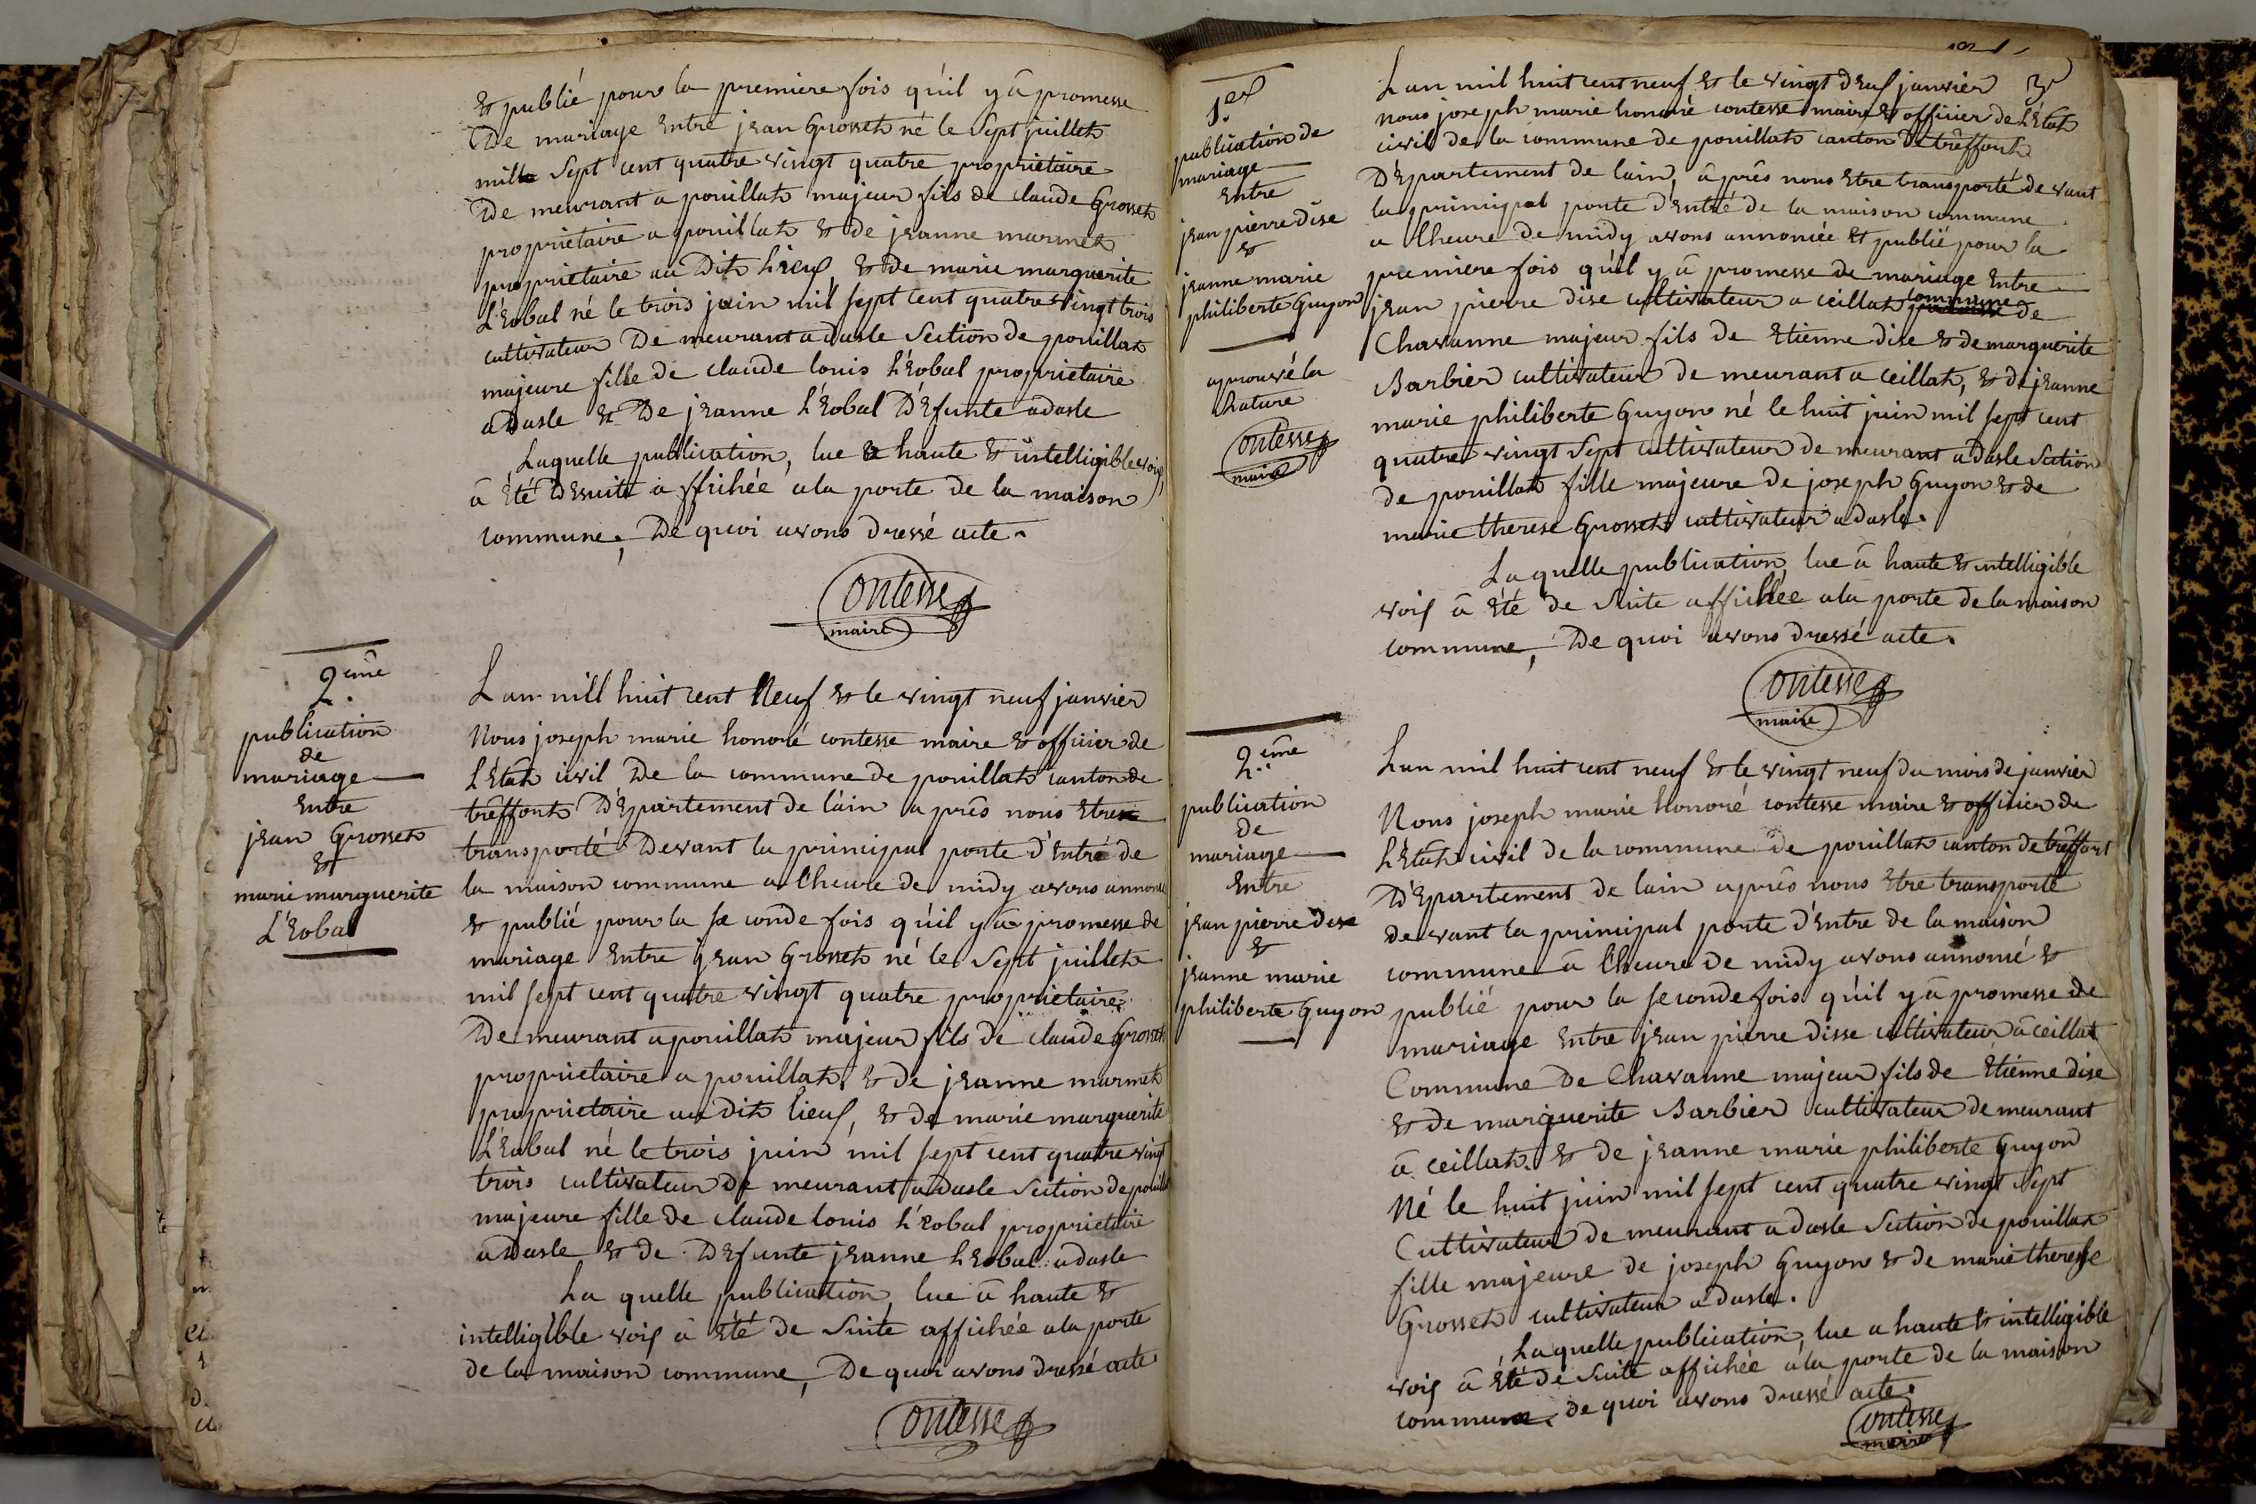 & publié pour la premiere fois qu'il y â promesse
De mariage Entre jean Grosset né le Sept juillet
mille Sept cent quatre vingt quatre proprietaire
De meurant a pouillat majeur fils de claude Grosset
proprietaire a pouillat & de jeanne marmet
proprietaire au Dit Lieux, & de marie marguerite
L'Eobal né le trois juin mil sept cent quatre vingt trois
cultivateur De meurant a dasle Section de pouillat
majeure fille de claude louis L'Eobal proprietaire
a Dasle & De jeanne L'Eobal Défunte a dasle
Laquelle publication, lue a haute & intelligible voix
â Eté Desuite affichée a la porte de la maison
commune, De quoi avons dressé acte.
Contesse
maire
2.ème
publication
de
mariage
Entre
jean Grosset
&
marie marguerite
L'Eobal
L an mill huit cent Neuf & le vingt neuf janvier
Nous joseph marie honoré contesse maire & officier de
L'Etat civil De la commune de pouillat canton de
trêffort Département de l'ain a prês nous Etre
transporté Devant la principal porte d'Entré de
la maison commune a l'heure de midy avons annoncé
& publié pour la se conde fois qu'il y â promesse de
mariage Entre jean Grosset né le Sept juillet
mil sept cent quatre vingt quatre proprietaire
De meurant a pouillat majeur fils de claude Grosset
proprietaire a pouillat & de jeanne marmet
proprietaire au dit lieux, & de marie marguerite
L'Eobal né le trois juin mil sept cent quatre vingt
trois cultivateur De meurant a dasle Section de pouillat
majeure fille de claude louis L'Eobal proprietaire
a Dasle & de Défunte jeanne L'Eobal a dasle
La quelle publication, lue â haute &
intelligible voix â Eté de Suite affichée a la porte
de la maison commune, De quoi avons dressé acte
Contesse
1.er
publication de
mariage
Entre
jean pierre dise
&
jeanne marie
philiberte Guyon
aprouvé la
Rature
Contesse
maire
3e
L an mil huit cent neuf & le vingt deux janvier
nous joseph marie honoré contesse maire & officier de L'Etat
civil de la commune de pouillat canton de trêffort
Département de lain, â prês nous Etre transporté de vant
la principal porte d'Entré de la maison commune
a lheure de midy avons annoncée & publié pour la
premiere fois qu'il y â promesse de mariage Entre
jean pierre dise cultivateur a ceillat commune de
Chavanne majeur fils de Etienne dise & de marguerite
Barbier cultivateur de meurant a ceillat, & de jeanne
marie philiberte Guyon né le huit juin mil sept cent
quatre vingt Sept cultivateur de meurant a dasle Section
de pouillat fille majeure de joseph Guyon & de
marie therese Grosset cultivateur a dasle.
Laquelle publication, lue â haute & intelligible
voix â Eté de Suite affichée a la porte de la maison
commune, De quoi avons dressé acte.
Contesse
maire
2.ème
publication
de
mariage
Entre
jean pierre dise
&
jeanne marie
philiberte Guyon
L an mil huit cent neuf & le vingt neuf du mois de janvier
Nous joseph marie honoré contesse maire & officier de
L'Etat civil de la commune de pouillat canton de trêffort
Département de lain aprês nous Etre transporté
de vant la principal porte d'Entre de la maison
commune â l'heure de midy avons annoncé &
publié pour la seconde fois qu'il y â promesse de
mariage Entre jean pierre disse cultivateur â ceillat
Commune De Chavanne majeur fils de Etienne dise
& de marguerite Barbier cultivateur de meurant
â ceillat, & de jeanne marie philiberte Guyon
Né le huit juin mil sept cent quatre vingt Sept
Cultivateur de meurant a dasle Section de pouillat
fille majeure de joseph Guyon & de marie therese
Grosset cultivateur a dasle.
Laquelle publication, lue a haute & intelligible
voix â Eté de Suite affichée a la porte de la maison
commune, de quoi avons dressé acte.
Contesse
maire